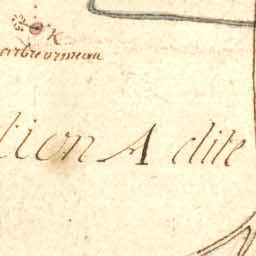 K
arbre ormeau
tion A dite